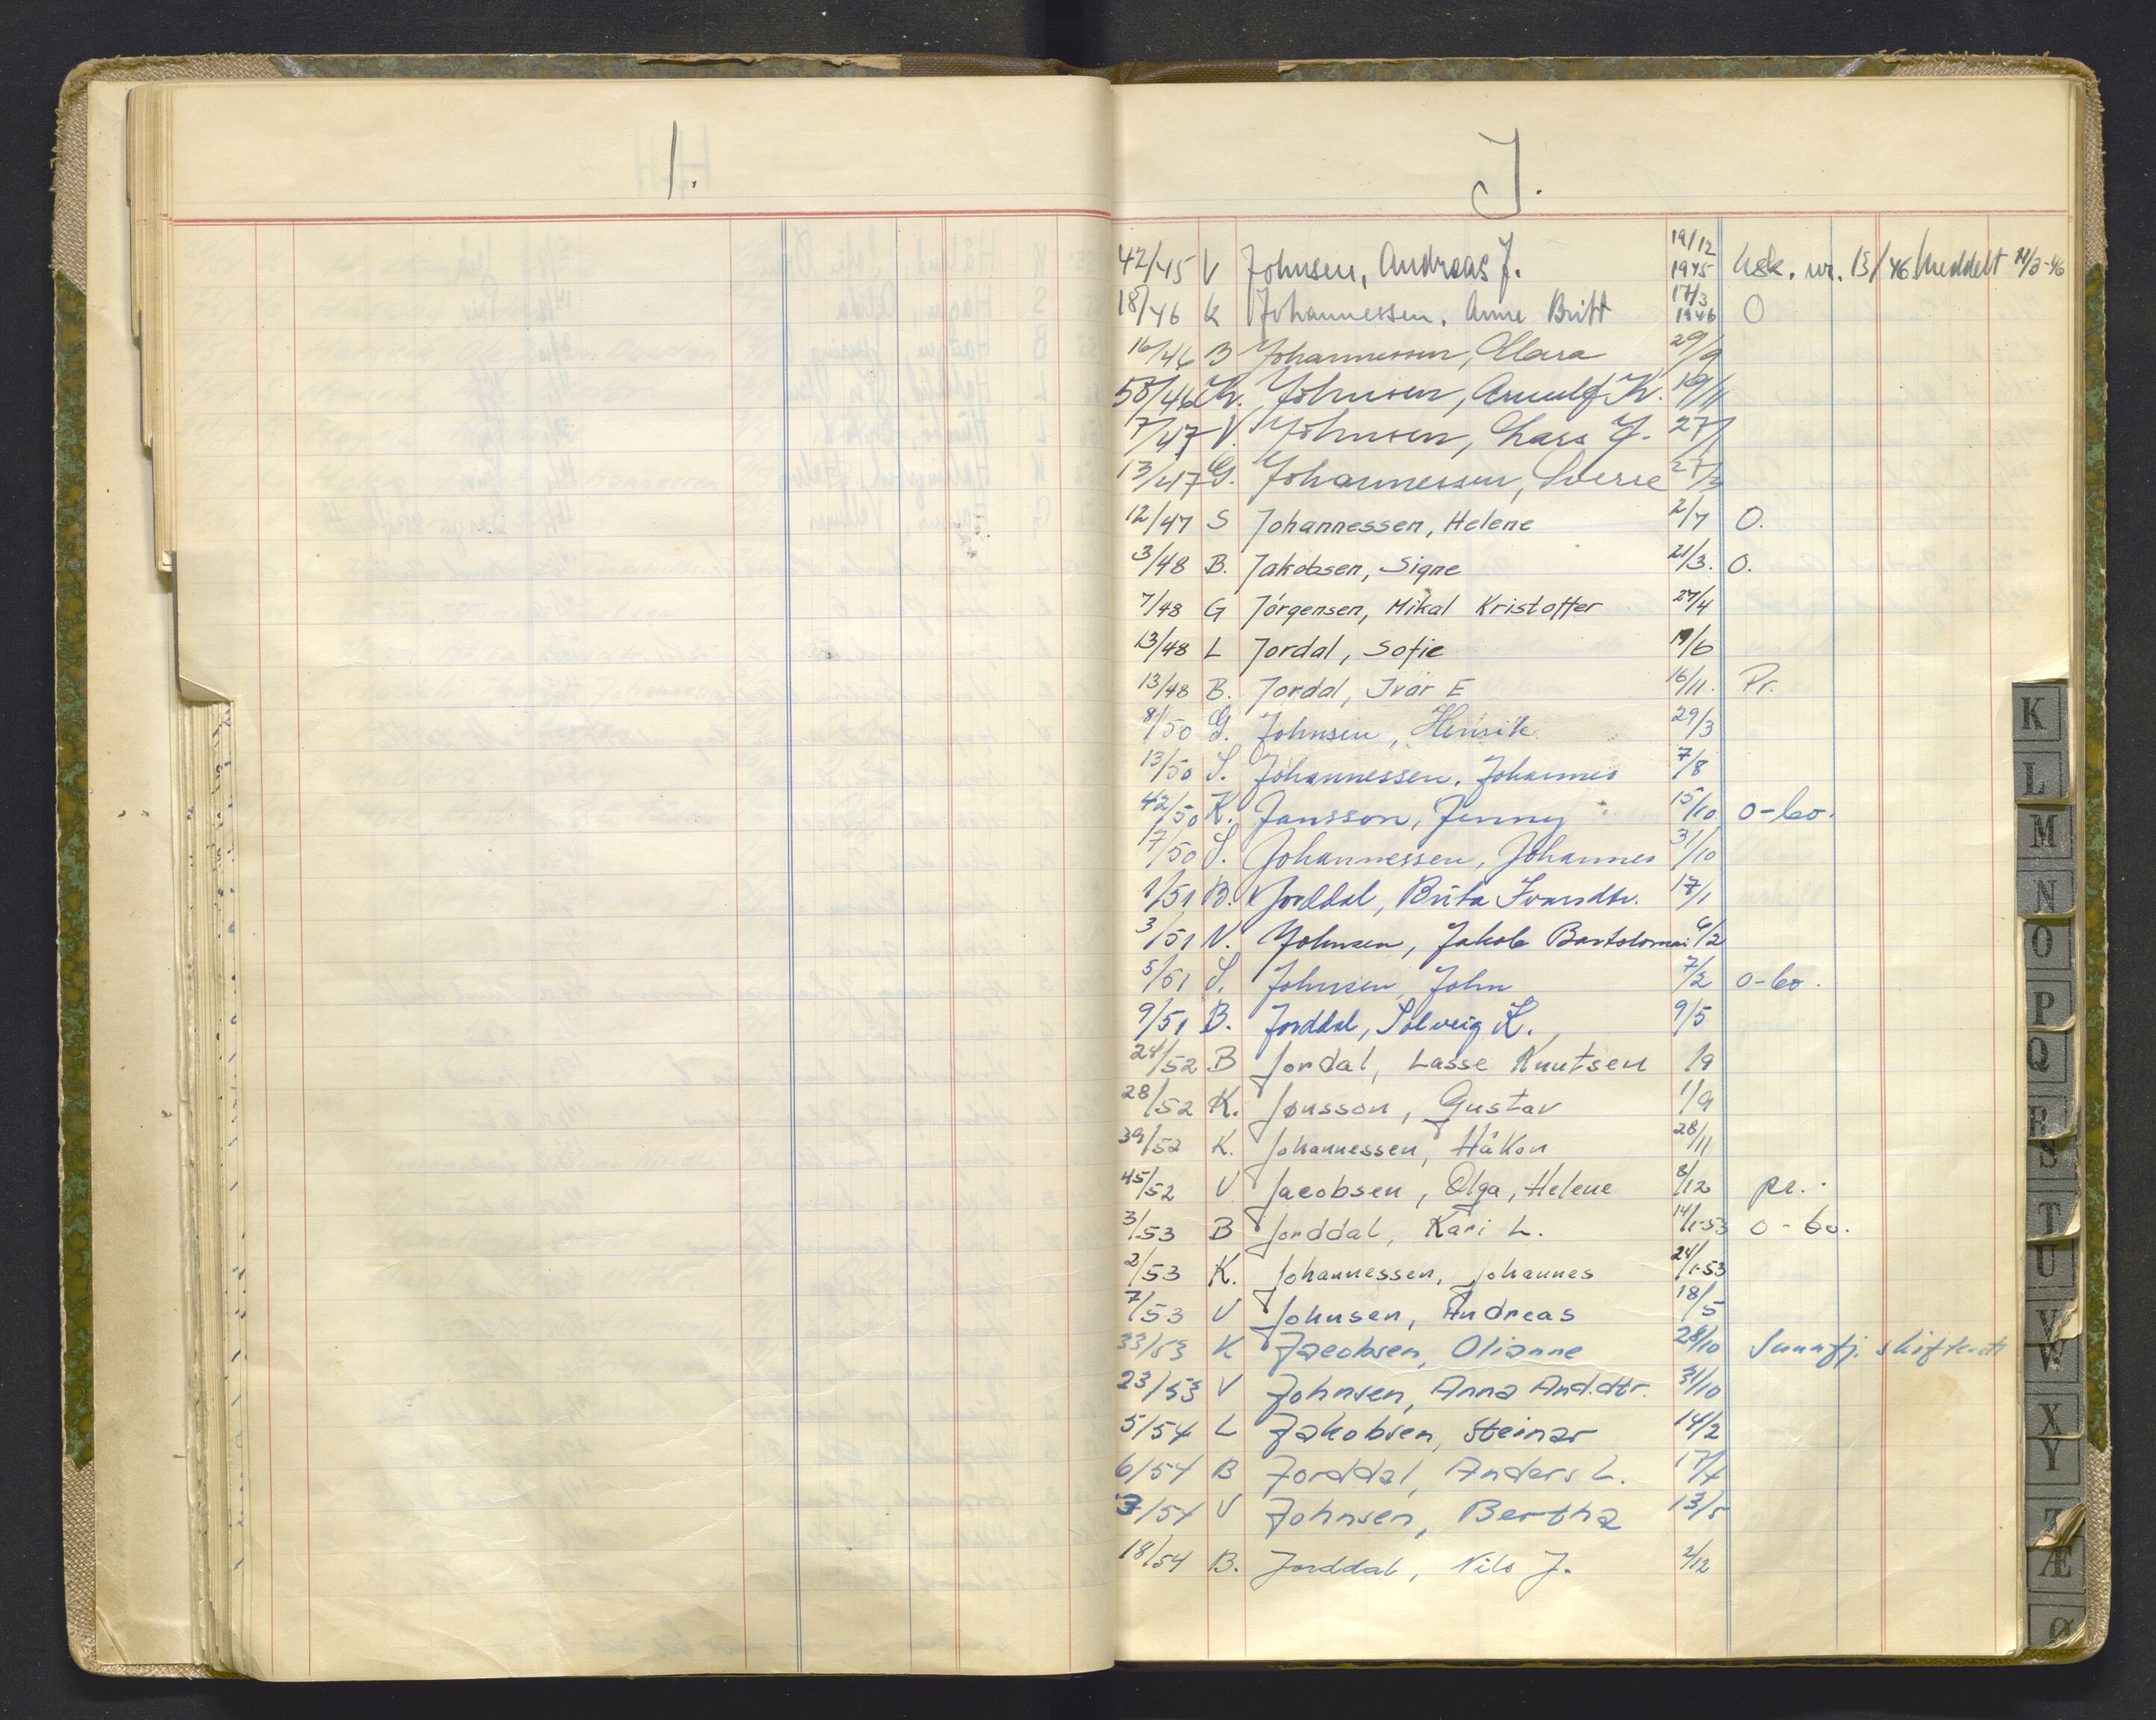 I.
J.
42/45 V Johnsen, Andreas J. 19/12 1945 Usk. nr. 15/46 meddelt
18/46 K Johannessen, Anne Britt 17/3 1946 O
16/46 B Johannessen, Clara 29/9
58/46 Johnsen, Arnulf Kr. 19/11
7/47 V. Johnsen, Lars J. 27/1
13/47 G. Johannessen, Sverre 27/3
12/47 S Johannessen, Helene 2/7 O.
3/48 B. Jakobsen, Signe 21/3. O.
7/48 G Jörgensen, Mikal Kristoffer 27/4
13/48 L Jordal, Sofie 19/6
13/48 B. Jordal, Ivar E 16/11. Pr.
8/50 G. Johnsen, Henrik 29/3
13/50 S. Johannessen, Johannes 7/8
42/50 K. Jansson, Jenny 15/10 o-bo.
17/50 S. Johannessen, Johannes 31/10
1/51 B. Jorddal, Brita Ivarsdtr. 17/1
3/51 V. Johnsen, Jakob Bartolomai 6/2
5/51 S. Johnsen, John 7/2 o-bo.
9/51 B. Jorddal, Solveig K. 9/5
24/52 B Jordal, Lasse Knutsen /9
28/52 K. Jonsson, Gustav 1/9
39/52 K. Johannessen, Håkon 28/11
45/52 V Jacobsen, Olga, Helene 8/12 pr.
3/53 B Jorddal, Kari L. 14/1-53 o-bo.
2/53 K. Johannessen, Johannes 24/1-53
7/53 V Johnsen, Andreas 18/5
33/53 K Jacobsen, Olianne 28/10 Sunnfj. skifterett
23/53 V Johnsen, Anna And.dtr. 31/10
5/54 L Jakobsen, Steinar 14/2
6/54 B Jorddal, Anders L. 17/4
7/54 V Johnsen, Bertha 13/5
18/54 B. Jorddal, Nils J. 2/12
K
L
M
N
O
P
Q
R
S
T
U
V
W
X
Y
Z
Æ
Ø